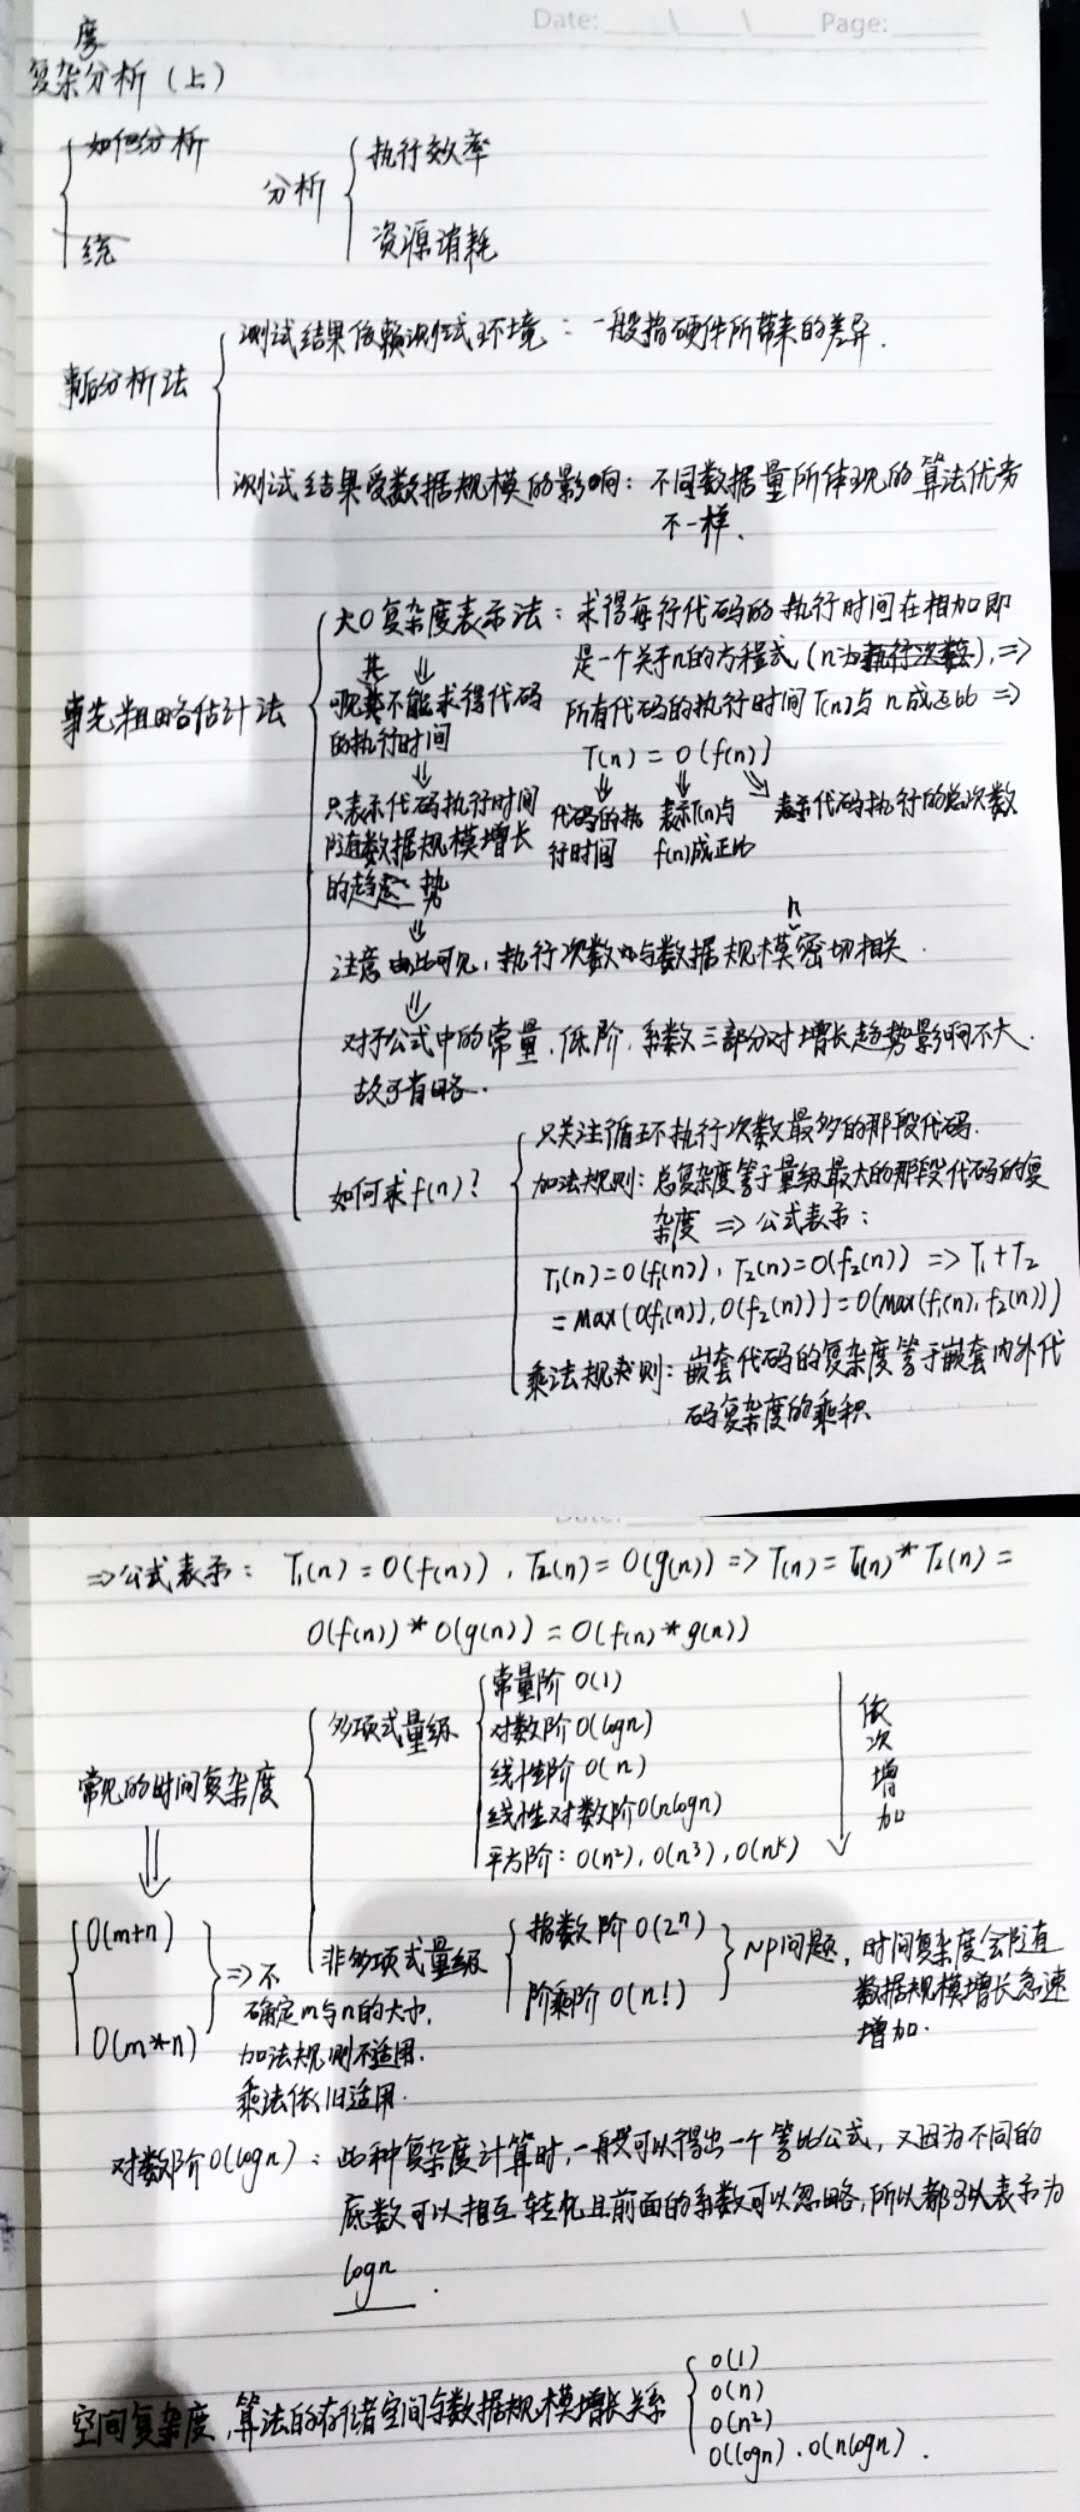 Date: Page:
度
复杂分析（上）
如何分析
统
分析
执行效率
资源消耗
事后分析法
测试结果依赖测试环境：一般指硬件所带来的差异.
测试结果受数据规模的影响：不同数据量所体现的算法优劣
不一样.
事先粗略估计法
大O复杂度表示法：求得每行代码的执行时间在相加即
是一个关于n的方程式,(n为执行次数),⇒
所有代码的执行时间T(n)与n成正比⇒
T(n) = O(f(n))
代码的执
行时间
表示T(n)与
f(n)成正比
表示代码执行的总次数
其
不能求得代码
的执行时间
只表示代码执行时间
随着数据规模增长
的趋势
n
注意由此可见,执行次数与数据规模密切相关.
对于公式中的常量.低阶.系数三部分对增长趋势影响不大.
故可省略.
如何求f(n)?
只关注循环执行次数最多的那段代码.
加法规则：总复杂度等于量级最大的那段代码的复
杂度⇒公式表示：
T₁(n)=O(f₁(n)), T₂(n)=O(f₂(n)) ⇒ T₁+T₂
=Max(O(f₁(n)),O(f₂(n)))=O(Max(f₁(n),f₂(n)))
乘法规则：嵌套代码的复杂度等于嵌套内外代
码复杂度的乘积
⇒公式表示： T₁(n)=O(f(n)), T₂(n)=O(g(n)) ⇒ T(n)=T₁(n)*T₂(n)=
O(f(n))*O(g(n))=O(f(n)*g(n))
常见的时间复杂度
多项式量级
常量阶 O(1)
对数阶 O(logn)
线性阶 O(n)
线性对数阶O(nlogn)
平方阶：O(n²),O(n³),O(nᵏ)
依次增加
非多项式量级
指数阶 O(2ⁿ)
阶乘阶 O(n!)
NP问题,时间复杂度会随着
数据规模增长急速
增加.
O(m+n)
O(m*n)
⇒不
确定m与n的大小,
加法规则不适用.
乘法依旧适用.
对数阶O(logn)：此种复杂度计算时,一般可以得出一个等比公式,又因为不同的
底数可以相互转化且前面的系数可以忽略,所以都可以表示为
logn
空间复杂度,算法的存储空间与数据规模增长关系
O(1)
O(n)
O(n²)
O(logn).O(nlogn).